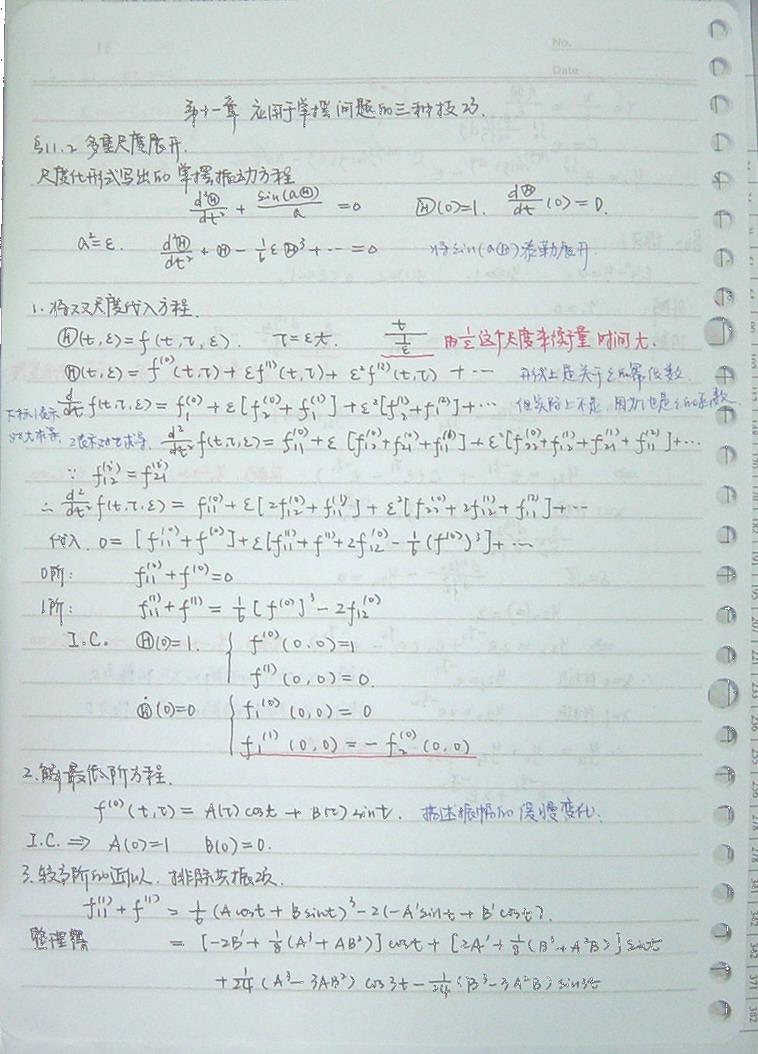 No.
Date
第十一章 应用于单摆问题的三种技巧.
§11.2 多重尺度展开.
尺度化形式写出的单摆振动方程
d²Ⓗ/dt² + sin(aⒽ)/a = 0   Ⓗ(0)=1. dⒽ/dt (0) = 0.
a²=ε. d²Ⓗ/dt² + Ⓗ - 1/6 εⒽ³ + ⋯ = 0 将sin(aⒽ)泰勒展开.
1. 将双尺度代入方程.
Ⓗ(t,ε) = f(t,τ,ε). τ=εt. t/(1/ε) 用1/ε这个尺度来衡量时间t.
Ⓗ(t,ε) = f⁽⁰⁾(t,τ) + εf⁽¹⁾(t,τ) + ε²f⁽²⁾(t,τ) + ⋯ 形状上是关于ε的幂级数.
下标1表示 d/dt f(t,τ,ε) = f₁⁽⁰⁾ + ε[f₂⁽⁰⁾+f₁⁽¹⁾] + ε²[f₂⁽¹⁾+f₁⁽²⁾] + ⋯ 但实际上不是, 因为τ也是ε的函数.
对t求导, 2表示对τ求导. d²/dt² f(t,τ,ε) = f₁₁⁽⁰⁾ + ε [f₁₂⁽⁰⁾+f₂₁⁽⁰⁾+f₁₁⁽¹⁾] + ε²[f₂₂⁽⁰⁾+f₁₂⁽¹⁾+f₂₁⁽¹⁾+f₁₁⁽²⁾] + ⋯
∵ f₁₂⁽ⁱ⁾ = f₂₁⁽ⁱ⁾
∴ d²/dt² f(t,τ,ε) = f₁₁⁽⁰⁾ + ε[2f₁₂⁽⁰⁾+f₁₁⁽¹⁾] + ε²[f₂₂⁽⁰⁾+2f₁₂⁽¹⁾+f₁₁⁽²⁾] + ⋯
代入. 0 = [f₁₁⁽⁰⁾+f⁽⁰⁾] + ε[f₁₁⁽¹⁾+f⁽¹⁾+2f₁₂⁽⁰⁾ - 1/6 (f⁽⁰⁾)³] + ⋯
0阶: f₁₁⁽⁰⁾ + f⁽⁰⁾ = 0
1阶: f₁₁⁽¹⁾ + f⁽¹⁾ = 1/6 [f⁽⁰⁾]³ - 2f₁₂⁽⁰⁾
I.C. Ⓗ(0)=1. { f⁽⁰⁾(0,0)=1
f⁽¹⁾(0,0)=0.
Ⓗ̇(0)=0 { f₁⁽⁰⁾(0,0) = 0
f₁⁽¹⁾(0,0) = - f₂⁽⁰⁾(0,0)
2. 解最低阶方程.
f⁽⁰⁾(t,τ) = A(τ)cost + B(τ)sint. 描述振幅的缓慢变化.
I.C. ⇒ A(0)=1 B(0)=0.
3. 较高阶的近似. 排除共振项.
f₁₁⁽¹⁾ + f⁽¹⁾ = 1/6 (Acost + Bsint)³ - 2(-A'sint + B'cost).
整理得 = [-2B' + 1/8 (A³+AB²)] cost + [2A' + 1/8 (B³+A²B)] sint
+ 1/24 (A³-3AB²) cos3t - 1/24 (B³-3A²B) sin3t